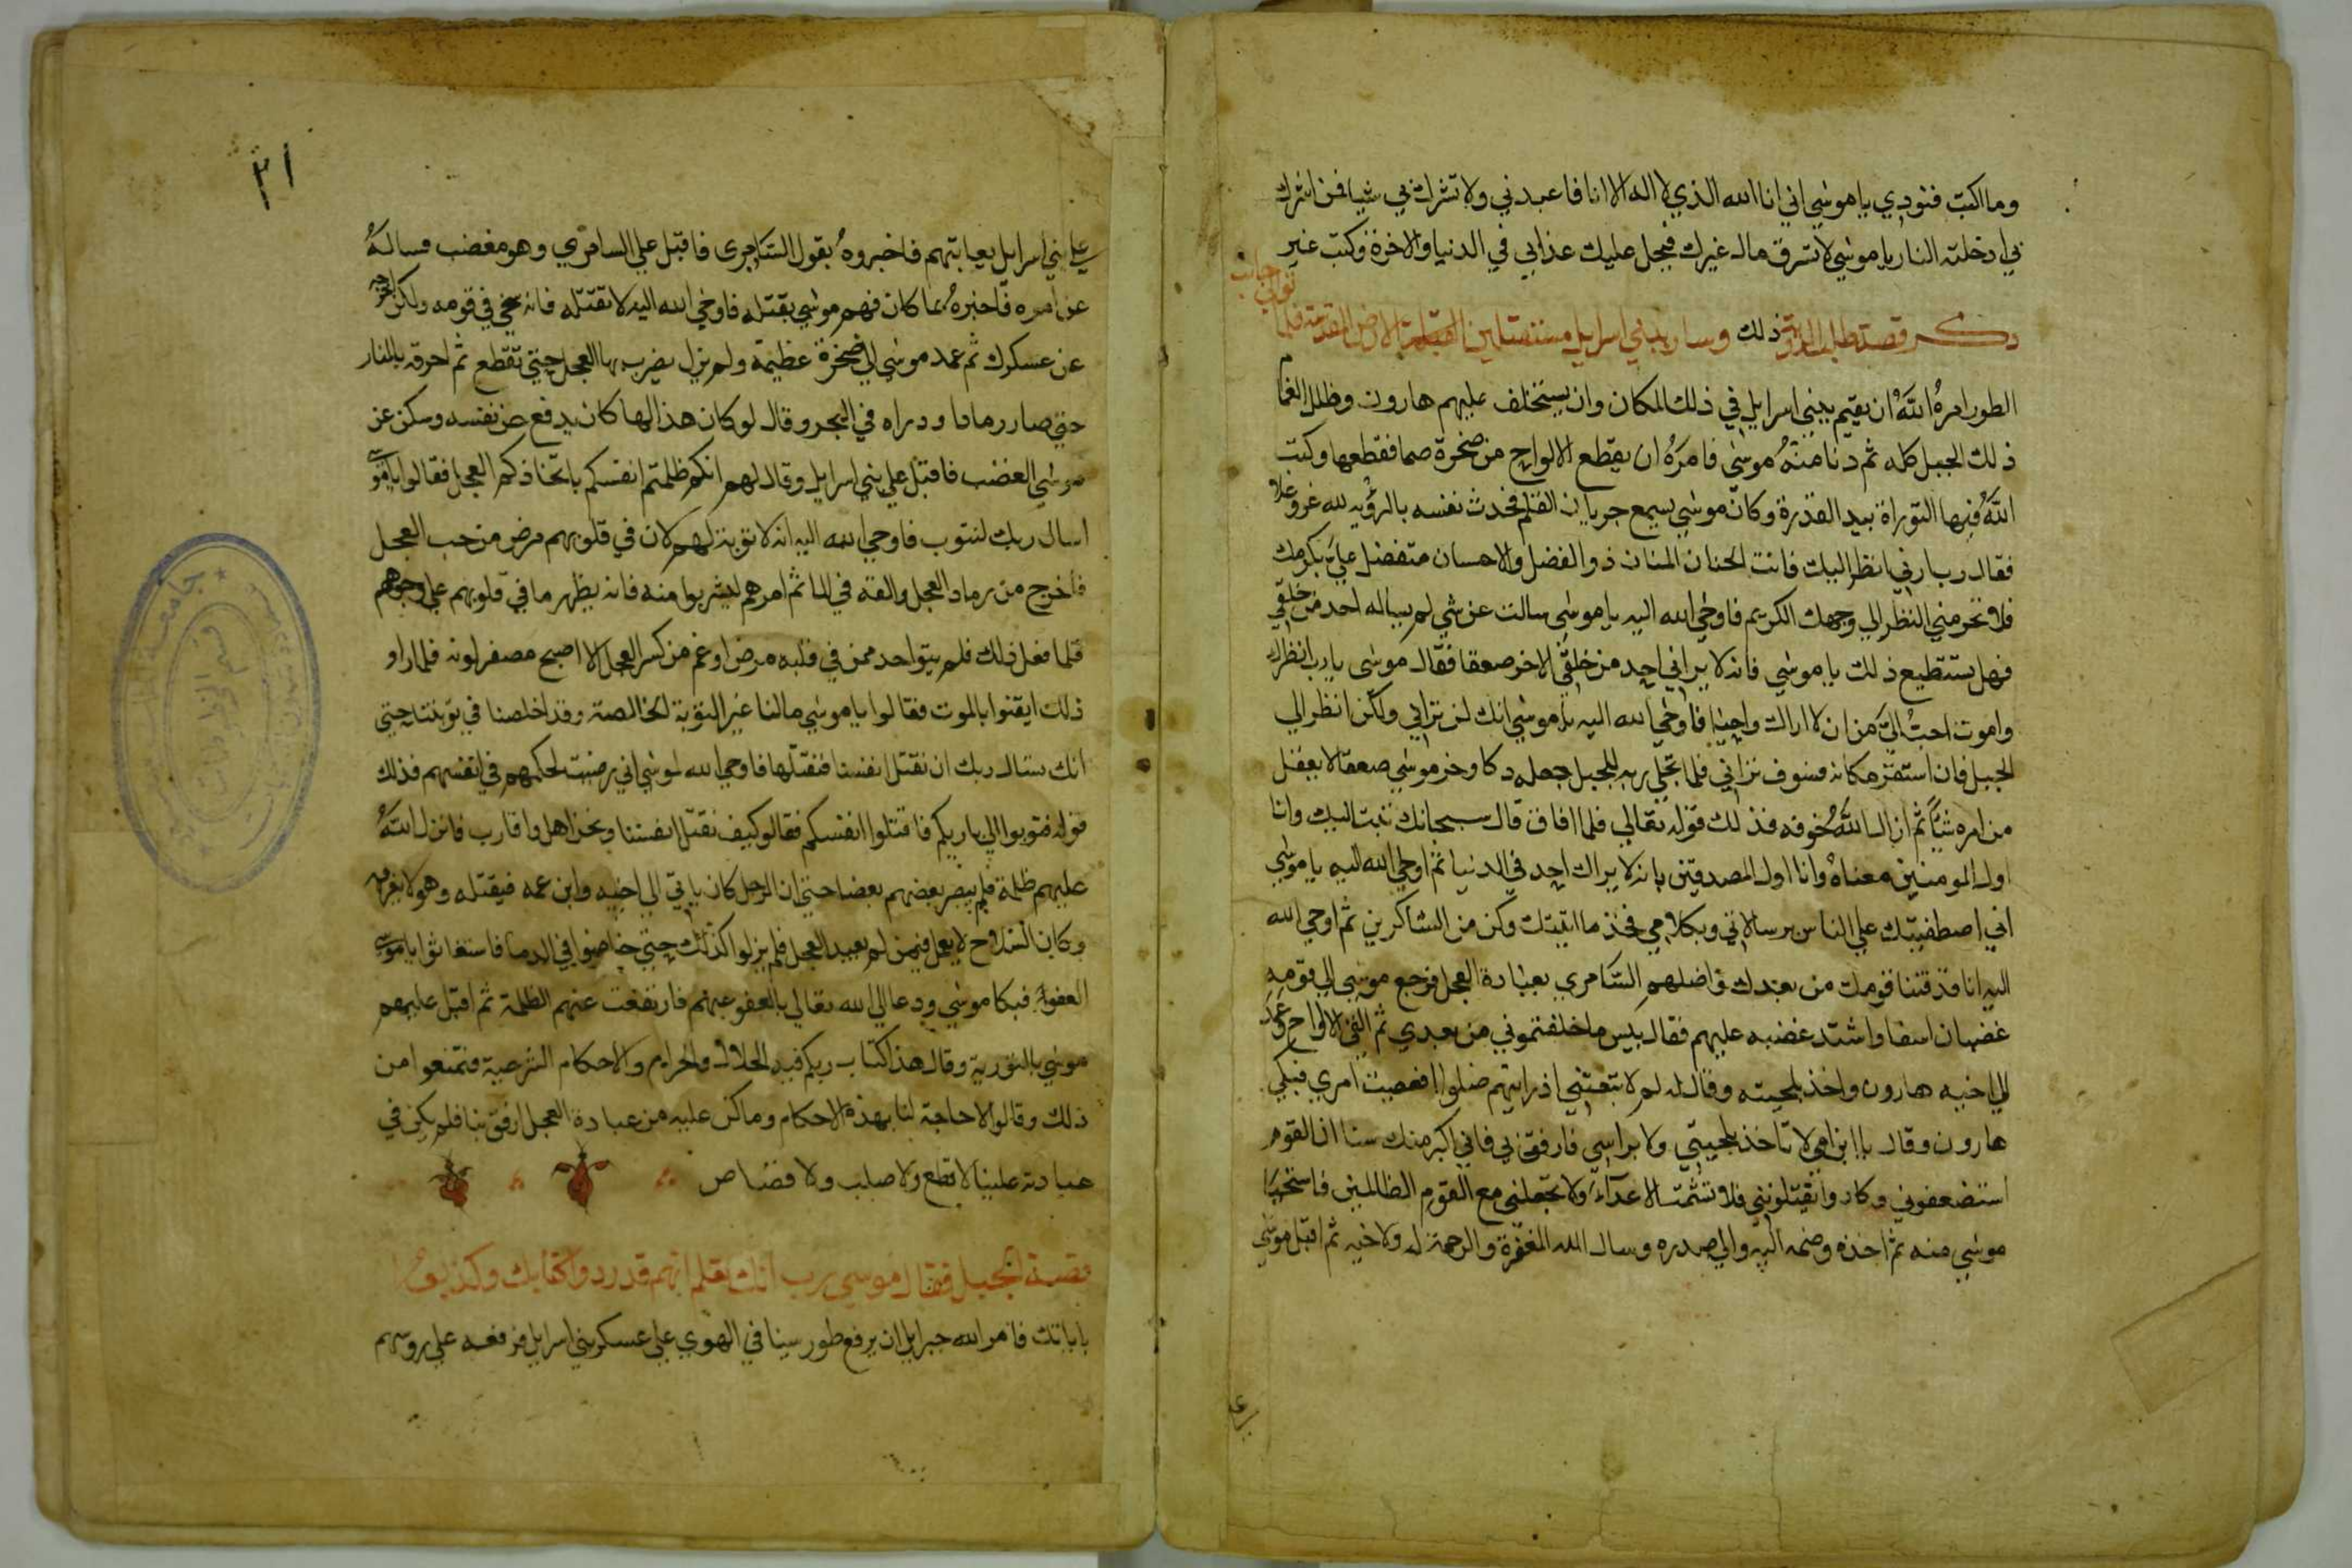 وما اكتب فنودي يا موسي اني انا الله الذي لا اله الا انا فاعبدني ولا تشرك بي شيا فمن اشرك
بي ادخلته النار يا موسي لا تسرق مال غيرك فيحل عليك عذابي في الدنيا والاخرة وكتب غير
ذكر قصة طلب الروية ذلك وسار ببني اسرايل مستقبلين الارض المقدسة فلما
توالي جانب
الطور امرهُ اللهُ ان يقيم ببني اسرايل في ذلك المكان وان يستخلف عليهم هارون وظلل الغمام
ذلك الجبل كله ثم دنا منهُ موسي فامرهُ ان يقطع الالواح من صخرة صما فقطعها وكتب
اللهُ فيها التوراة بيد القدرة وكان موسي يسمع جريان القلم فحدث نفسه بالرؤيه لله عز وعلا
فقال رب ارني انظر اليك فانت الحنان المنان ذو الفضل والاحسان متفضل عليَّ بكرمك
فلا تحرمني النظر الي وجهك الكريم فاوحي الله اليه يا موسي سالت عن شي لم يساله احد من خلقي
فهل يستطيع ذلك يا موسي فانه لا يراني احد من خلقي الا خر صعقا فقال موسي يا رب انظرك
واموت احبُ اليَّ من ان لا اراك واحيا فاوحي الله اليه يا موسي انك لن تراني ولكن انظر الي
الجبل فان استقر مكانه فسوف تراني فلما تجلي ربه للجبل جعله دكا وخر موسي صعقا لا يعقل
من امره شياً ثم ازال اللهُ خوفه فذلك قوله تعالي فلما افاق قال سبحانك تبت اليك وانا
اول المومنين معناه وانا اول المصدقين بانه لا يراك احد في الدنيا ثم اوحي الله اليه يا موسي
اني اصطفيتك علي الناس برسالاتي وبكلامي فخذ ما اتيتك وكن من الشاكرين ثم اوحي الله
اليه انا قد فتنا قومك من بعدك واضلهم السامري بعبادة العجل فرجع موسي الي قومه
غضبان اسفا واشتد غضبه عليهم فقال بيس ما خلفتموني من بعدي ثم القي الالواح وعمد
الي اخيه هارون واخذ بلحيته وقال له لم لا تتبعني اذ رايتهم ضلوا افعصيت امري فبكي
هارون وقال يا ابن امي لا تاخذ بلحيتي ولا براسي فارفق بي فاني اكبر منك سنا ان القوم
استضعفوني وكادوا يقتلونني فلا تشمت الاعداءَ ولا تجعلني مع القوم الظالمين فاستحيا
موسي منه ثم اخذه وضمه اليه والي صدره وسال الله المغفرة والرحمة له ولاخيه ثم اقبل موسي
٢١
علي بني اسرايل يعاتبهم فاخبروهُ بقول السامري فاقبل علي السامري وهو مغضب فسالهُ
عن امره فاخبرهُ بما كان فهم موسي بقتله فاوحي الله اليه لا تقتله فانه سخي في قومه ولكن اخرجه
عن عسكرك ثم عمد موسي الي صخرة عظيمة ولم يزل يضرب بها العجل حتي تقطع ثم احرقه بالنار
حتي صار رمادا ودراه في البحر وقال لو كان هذا الها كان يدفع عن نفسه وسكن عن
موسي الغضب فاقبل علي بني اسرايل وقال لهم انكم ظلمتم انفسكم باتخاذكم العجل فقالوا يا موسي
اسال ربك لنتوب فاوحي الله اليه انه لا توبة لهم لان في قلوبهم مرض من حب العجل
فاخرج من رماد العجل والقه في الما ثم امرهم ليشربوا منه فانه يظهر ما في قلوبهم علي وجوههم
فلما فعل ذلك فلم يبق احد ممن في قلبه مرض او غم من كسر العجل الا اصبح مصفر لونه فلما راو
ذلك ايقنوا بالموت فقالوا يا موسي مالنا غير التوبة الخالصة وقد اخلصنا في توبتنا حتي
انك تسال ربك ان نقتل انفسنا فنقتلها فاوحي الله لموسي اني رضيت لحكمهم في انفسهم فذلك
قوله فتوبوا الي باريكم فاقتلوا انفسكم فقالو كيف نقتل انفسنا ونحن اهل واقارب فانزل اللهُ
عليهم ظلمة فلم يبصر بعضهم بعضا حتي ان الرجل كان ياتي الي اخيه وابن عمه فيقتله وهو لا يعرفه
وكان السلاح لا يعمل فيمن لم يعبد العجل فلم يزلوا كذلك حتي خاضوا في الدما فاستغاثوا يا موسي
العفو فبكا موسي ودعا الي الله تعالي بالعفو عنهم فارتفعت عنهم الظلمة ثم اقبل عليهم
موسي بالتورية وقال هذا كتاب ربكم فيه الحلال والحرام والاحكام الشرعية فتمنعوا من
ذلك وقالوا لا حاجة لنا بهذه الاحكام وما كن عليه من عبادة العجل ارفق بنا فلم يكن في
عبادته علينا لا قطع ولا صلب ولا قصاص
قصة الجبل فقال موسي رب انك تعلم انهم قد ردوا كتابك وكذبوا
باياتك فامر الله جبرايل ان يرفع طور سينا في الهوي علي عسكر بني اسرايل فرفعه علي روسهم